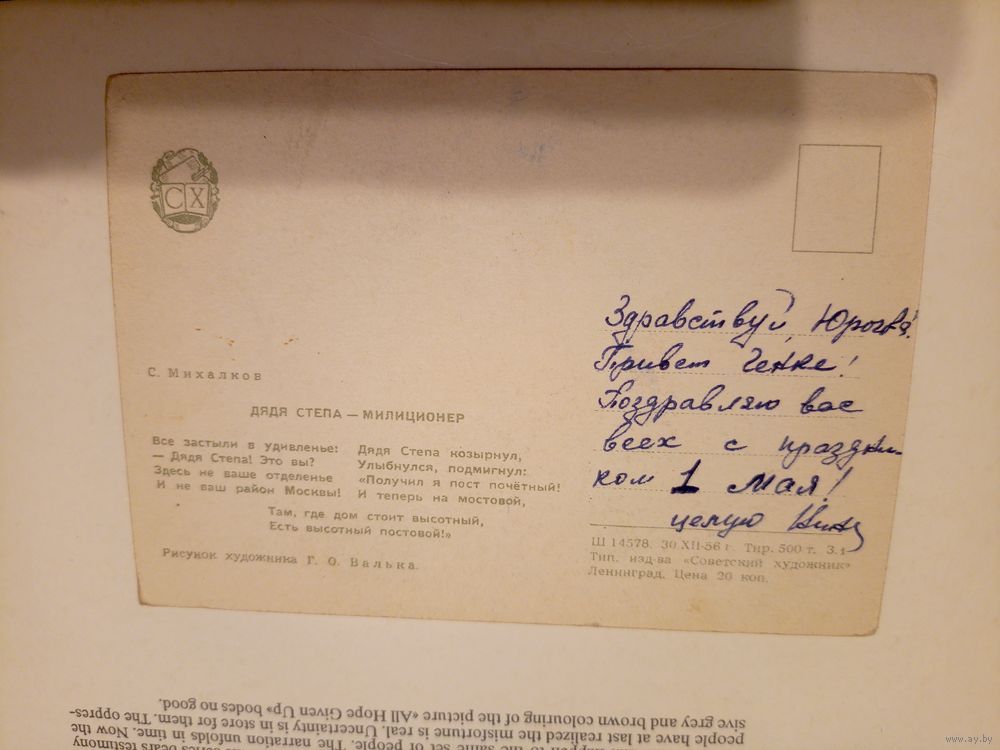 СХ
С. Михалков
ДЯДЯ СТЕПА — МИЛИЦИОНЕР
Все застыли в удивленье:
— Дядя Степа! Это вы?
Здесь не ваше отделенье
И не ваш район Москвы!
Дядя Степа козырнул,
Улыбнулся, подмигнул:
«Получил я пост почётный!
И теперь на мостовой,
Там, где дом стоит высотный,
Есть высотный постовой!»
Рисунок художника Г. О. Валька.
Здравствуй, Юрочка!
Привет Генке!
Поздравляю вас
всех с праздни-
ком 1 мая!
целую Нина
Ш 14578. 30.XII-56 г. Тир. 500 т. З.1
Тип. изд-ва «Советский художник»
Ленинград. Цена 20 коп.
sive grey and brown colouring of the picture «All Hope Given Up» bodes no good.
people have at last realized the misfortune is real. Uncertainty is in store for them. The oppres-
to the same set of people. The narration unfolds in time. Now the
series bears testimony
www.ay.by